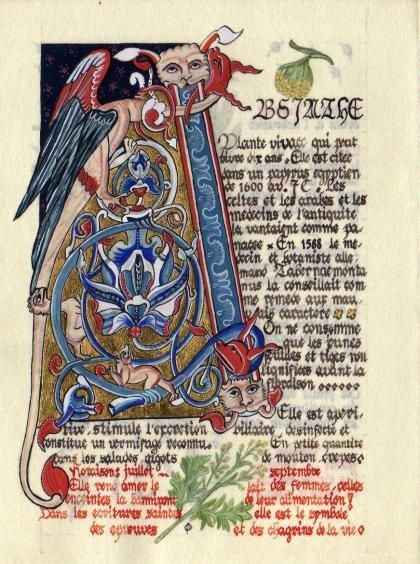 ABSINTHE
Plante vivace qui peut
vivre dix ans. Elle est citée
dans un papyrus egyptien
de 1600 av. J.C. Les
celtes et les arabes et les
medecins de l'antiquité
la vantaient comme pa
nacée En 1588 le me
decin et botaniste alle
mand Tabernaemonta
nus la conseillait com
me remede aux mau
vais caractere
On ne consomme
que les jeunes
feuilles et tiges non
lignifiées avant la
floraison
Elle est aperi
tive, stimule l'excretion biliaire, desinfecte et
constitue un vermifuge reconnu. En petite quantité
dans les salades, gigots de mouton, crepes
Floraison: juillet septembre
Elle rend amer le lait des femmes, celles
enceintes la banniront de leur alimentation!
Dans les ecritures saintes elle est le symbole
des epreuves et des chagrins de la vie